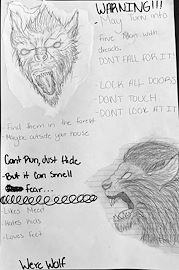 WARNING!!!
- May Turn into
Fine Man with
dreads.
DON'T FALL FOR IT!
- LOCK ALL DOORS
- DON'T TOUCH
- DON'T LOOK AT IT
- Find them in the forest
- Maybe outside your house
Cant Run, Just Hide
- But it Can Smell
fear...
- Likes Meat
- Hates Kids
- Loves Feet
Were Wolf